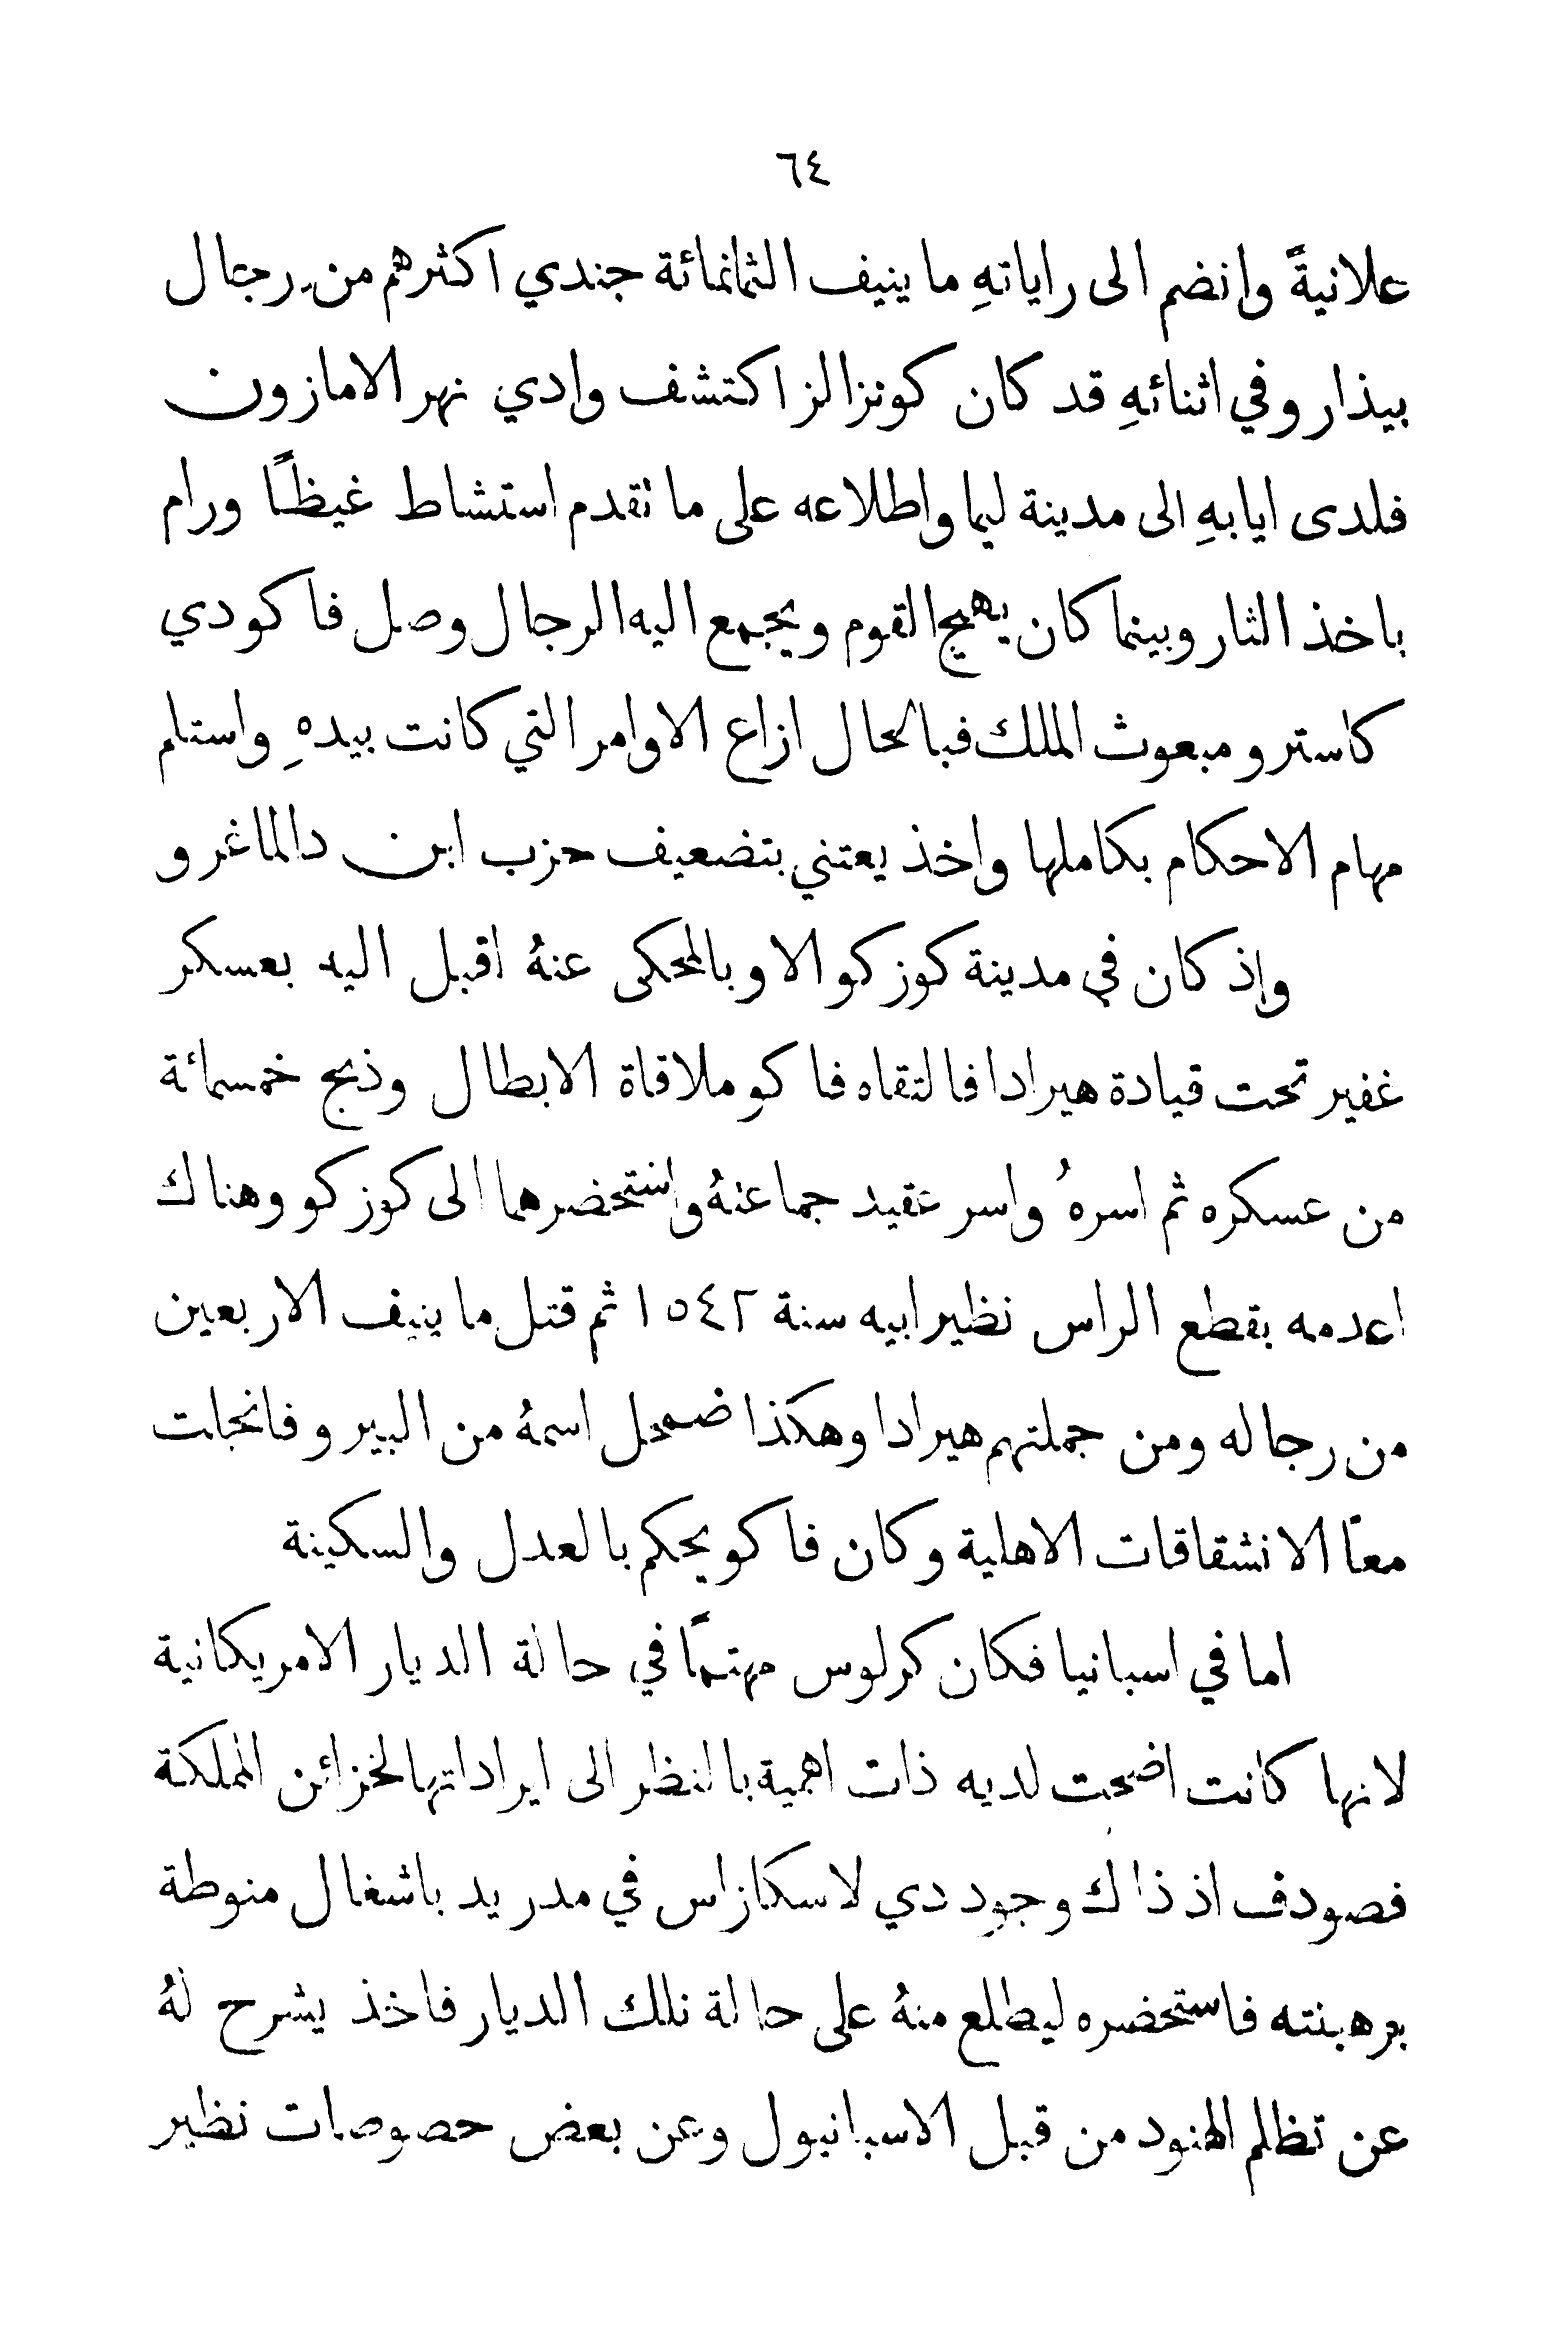 ٦٤
علانيةً وانضم الى راياتهِ ما ينيف الثمانمائة جندي اكثرهم من رجال
بيذارو وفي اثنائهِ قد كان كونزالز اكتشف وادي نهر الامازون
فلدى ايابهِ الى مدينة ليما واطلاعه على ما تقدم استشاط غيظًا ورام
باخذ الثار وبينما كان يهيج القوم ويجمع اليه الرجال وصل فاكو دي
كاسترو مبعوث الملك فبالحال ازاع الاوامر التي كانت بيدهِ واستلم
مهام الاحكام بكاملها واخذ يعتني بتضعيف حزب ابن دالماغرو
واذ كان في مدينة كوزكو الاوبالمحكى عنهُ اقبل اليه بعسكر
غفير تحت قيادة هيرادا فالتقاه فاكو ملاقاة الابطال وذبح خمسمائة
من عسكره ثم اسرهُ واسر عقيد جماعتهُ واستحضرهما الى كوزكو وهناك
اعدمه بقطع الراس نظير ابيه سنة ١٥٤٢ ثم قتل ما ينيف الاربعين
من رجاله ومن جملتهم هيرادا وهكذا ضمحل اسمهُ من البيرو فانجلت
معًا الانشقاقات الاهلية وكان فاكو يحكم بالعدل والسكينة
اما في اسبانيا فكان كرلوس مهتمًا في حالة الديار الامريكانية
لانها كانت اضحت لديه ذات اهمية بالنظر الى ايراداتها لخزائن المملكة
فصودف اذ ذاك وجود دي لاسكازاس في مدريد باشغال منوطة
برهبنته فاستحضره ليطلع منهُ على حالة تلك الديار فاخذ يشرح لهُ
عن تظلم الهنود من قبل الاسبانيول وعن بعض حصوصات نظير